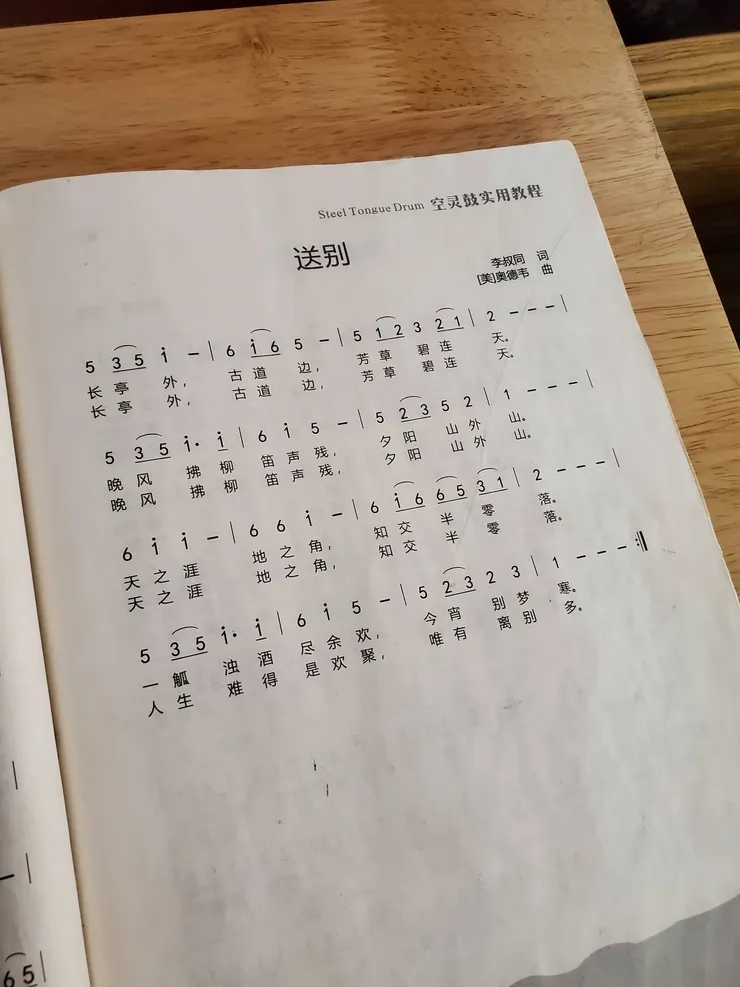 Steel Tongue Drum 空灵鼓实用教程
送别
李叔同 词
[美]奥德韦 曲
5 3 5 i̇ – | 6 i̇ 6 5 – | 5 1 2 3 2 1 | 2 – – – |
长 亭 外， 古 道 边， 芳 草 碧 连 天。
长 亭 外， 古 道 边， 芳 草 碧 连 天。
5 3 5 i̇· i̇ | 6 i̇ 5 – | 5 2 3 5 2 | 1 – – – |
晚 风 拂 柳 笛 声 残， 夕 阳 山 外 山。
晚 风 拂 柳 笛 声 残， 夕 阳 山 外 山。
6 i̇ i̇ – | 6 6 i̇ – | 6 i̇ 6 6 5 3 1 | 2 – – – |
天 之 涯 地 之 角， 知 交 半 零 落。
天 之 涯 地 之 角， 知 交 半 零 落。
5 3 5 i̇· i̇ | 6 i̇ 5 – | 5 2 3 2 3 | 1 – – – :‖
一 觚 浊 酒 尽 余 欢， 今 宵 别 梦 寒。
人 生 难 得 是 欢 聚， 唯 有 离 别 多。
6 5 |